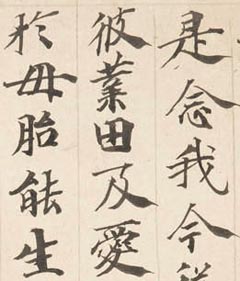 是念我今從
彼業田及愛
於母胎能生